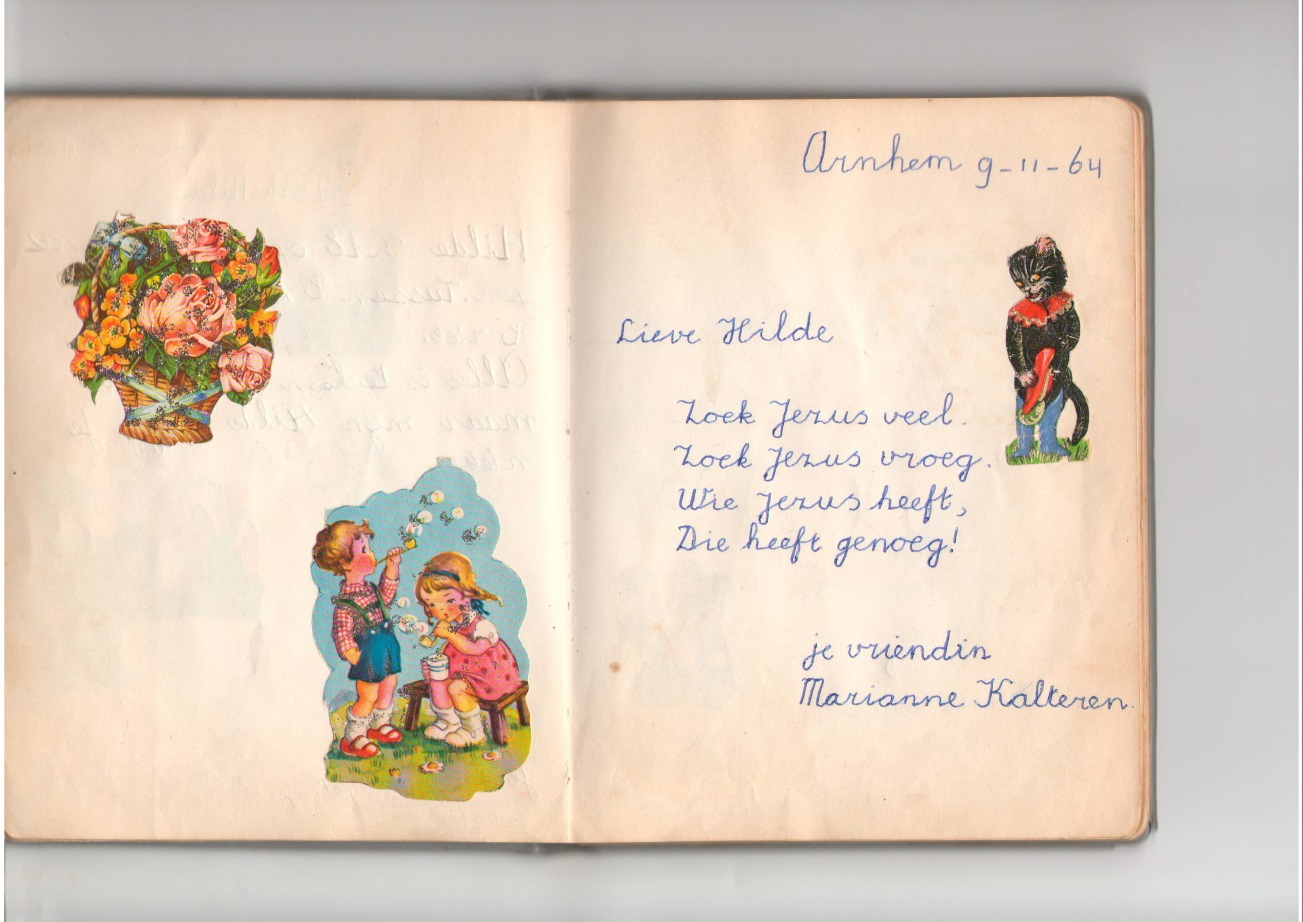 Arnhem 9-11-64
Lieve Hilde
Zoek Jezus veel.
Zoek Jezus vroeg.
Wie Jezus heeft,
Die heeft genoeg!
je vriendin
Marianne Kalteren.